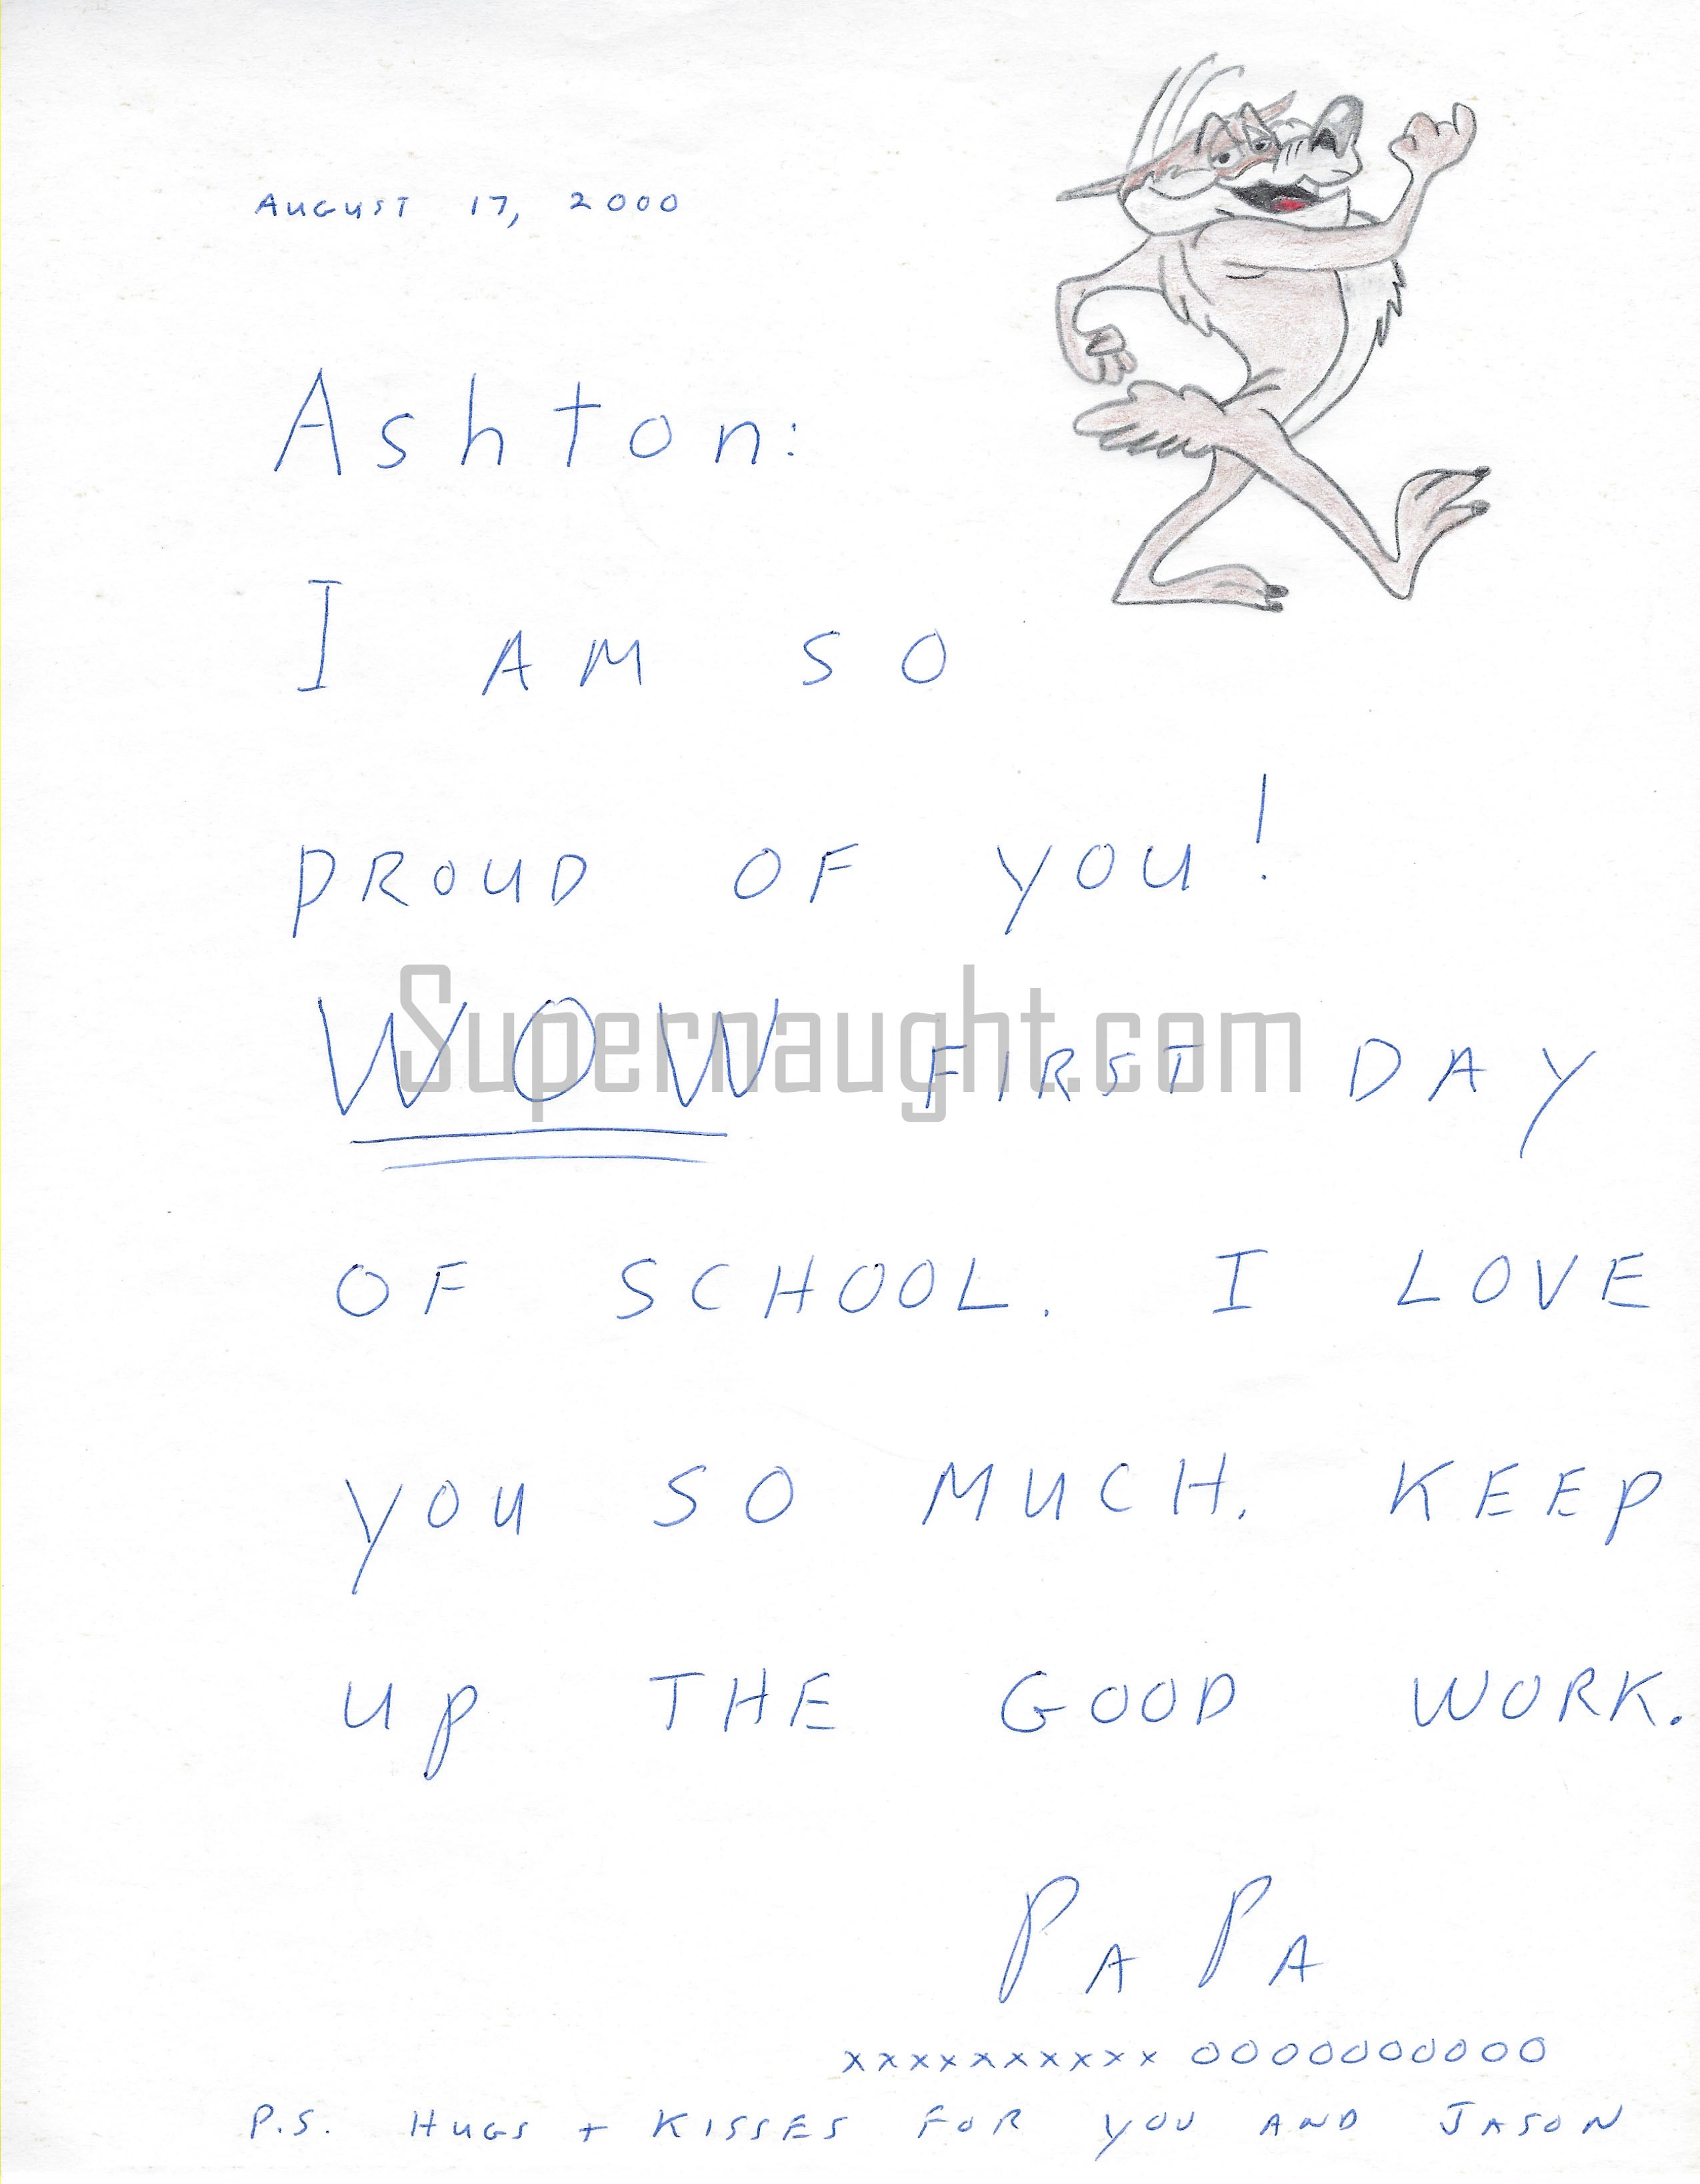 AUGUST 17, 2000
Ashton:
I AM SO
PROUD OF YOU!
WOW FIRST DAY
Supernaught.com
OF SCHOOL. I LOVE
YOU SO MUCH. KEEP
UP THE GOOD WORK.
PAPA
xxxxxxxxxx OOOOOOOOOO
P.S. HUGS + KISSES FOR YOU AND JASON